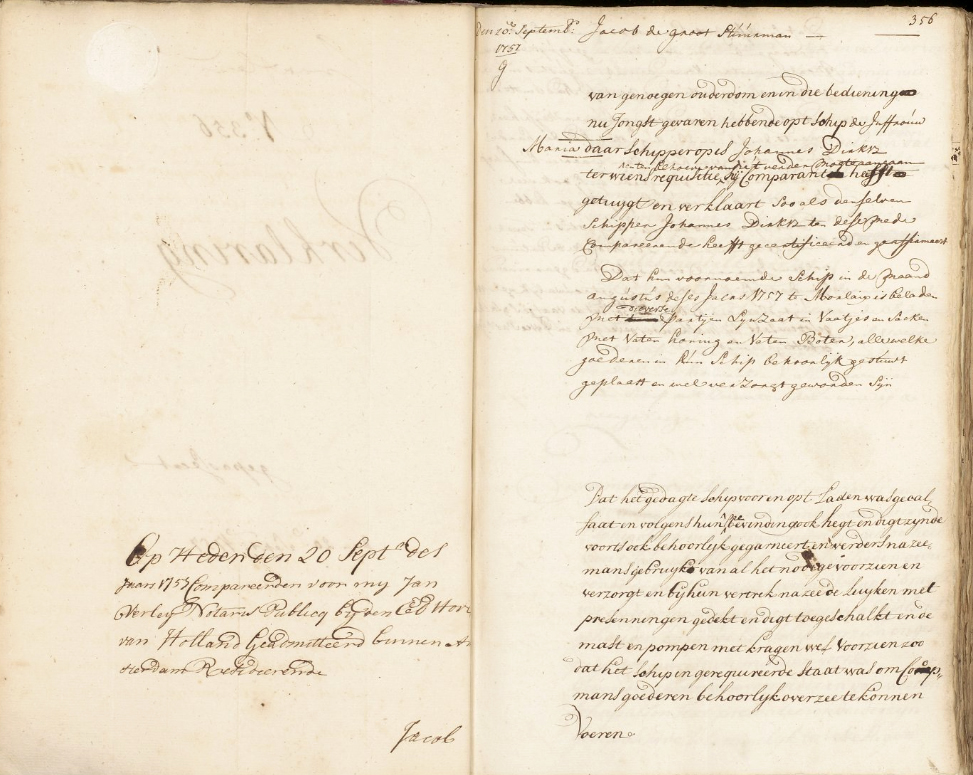 Op Heden den 20 Sept.r des
Jaars 1757 Compareerden voor my Jan
Verleij Notaris Publicq bij den Ed Hove
van Holland Geadmitteerd binnen
Residerende
Jacob
356
den 20e Septemb.r Jacob de groot Stuurman
1757
van genoegen ouderdom en in die bediening
nu Jongst gevaren hebbende opt Schip de Juffrouw
Maria daar Schipper op is Johannes Dirkz
ter wiens requisitie sij Comparant
getuygt en verklaart Soo als deselven
Schipper Johannes Dirkz ten deser mede
Compareerende heefft gecertificeerd en geaffirmeert
Dat hun voornoemde Schip in de maand
augustus deses Jaars 1757 te Morlaix is beladen
met diverse partijen Lynzaat in Vaatjes en Sacken
met Vaten honing en Vaten Boter, alle welke
goederen in hun Schip behoorlyk gestuwt
geplaatst en wel verzorgt geworden Syn
Dat het gedagte Schip voor en opt Laden was geval
saat en volgens hun bevinding ook hegt en digt zynde
voorts ook behoorlyk gegarniert en verders na zee-
mans gebruyk van al het nodige voorzien en
verzorgt en bij hun vertrek na zee de luyken met
presenningen gedekt en digt toegeschalkt en de
mast en pompen met kragen wel Voorzien zoo
dat het schip in gerequireerde staat was om Coop-
mans goederen behoorlyk over zee te konnen
Voeren